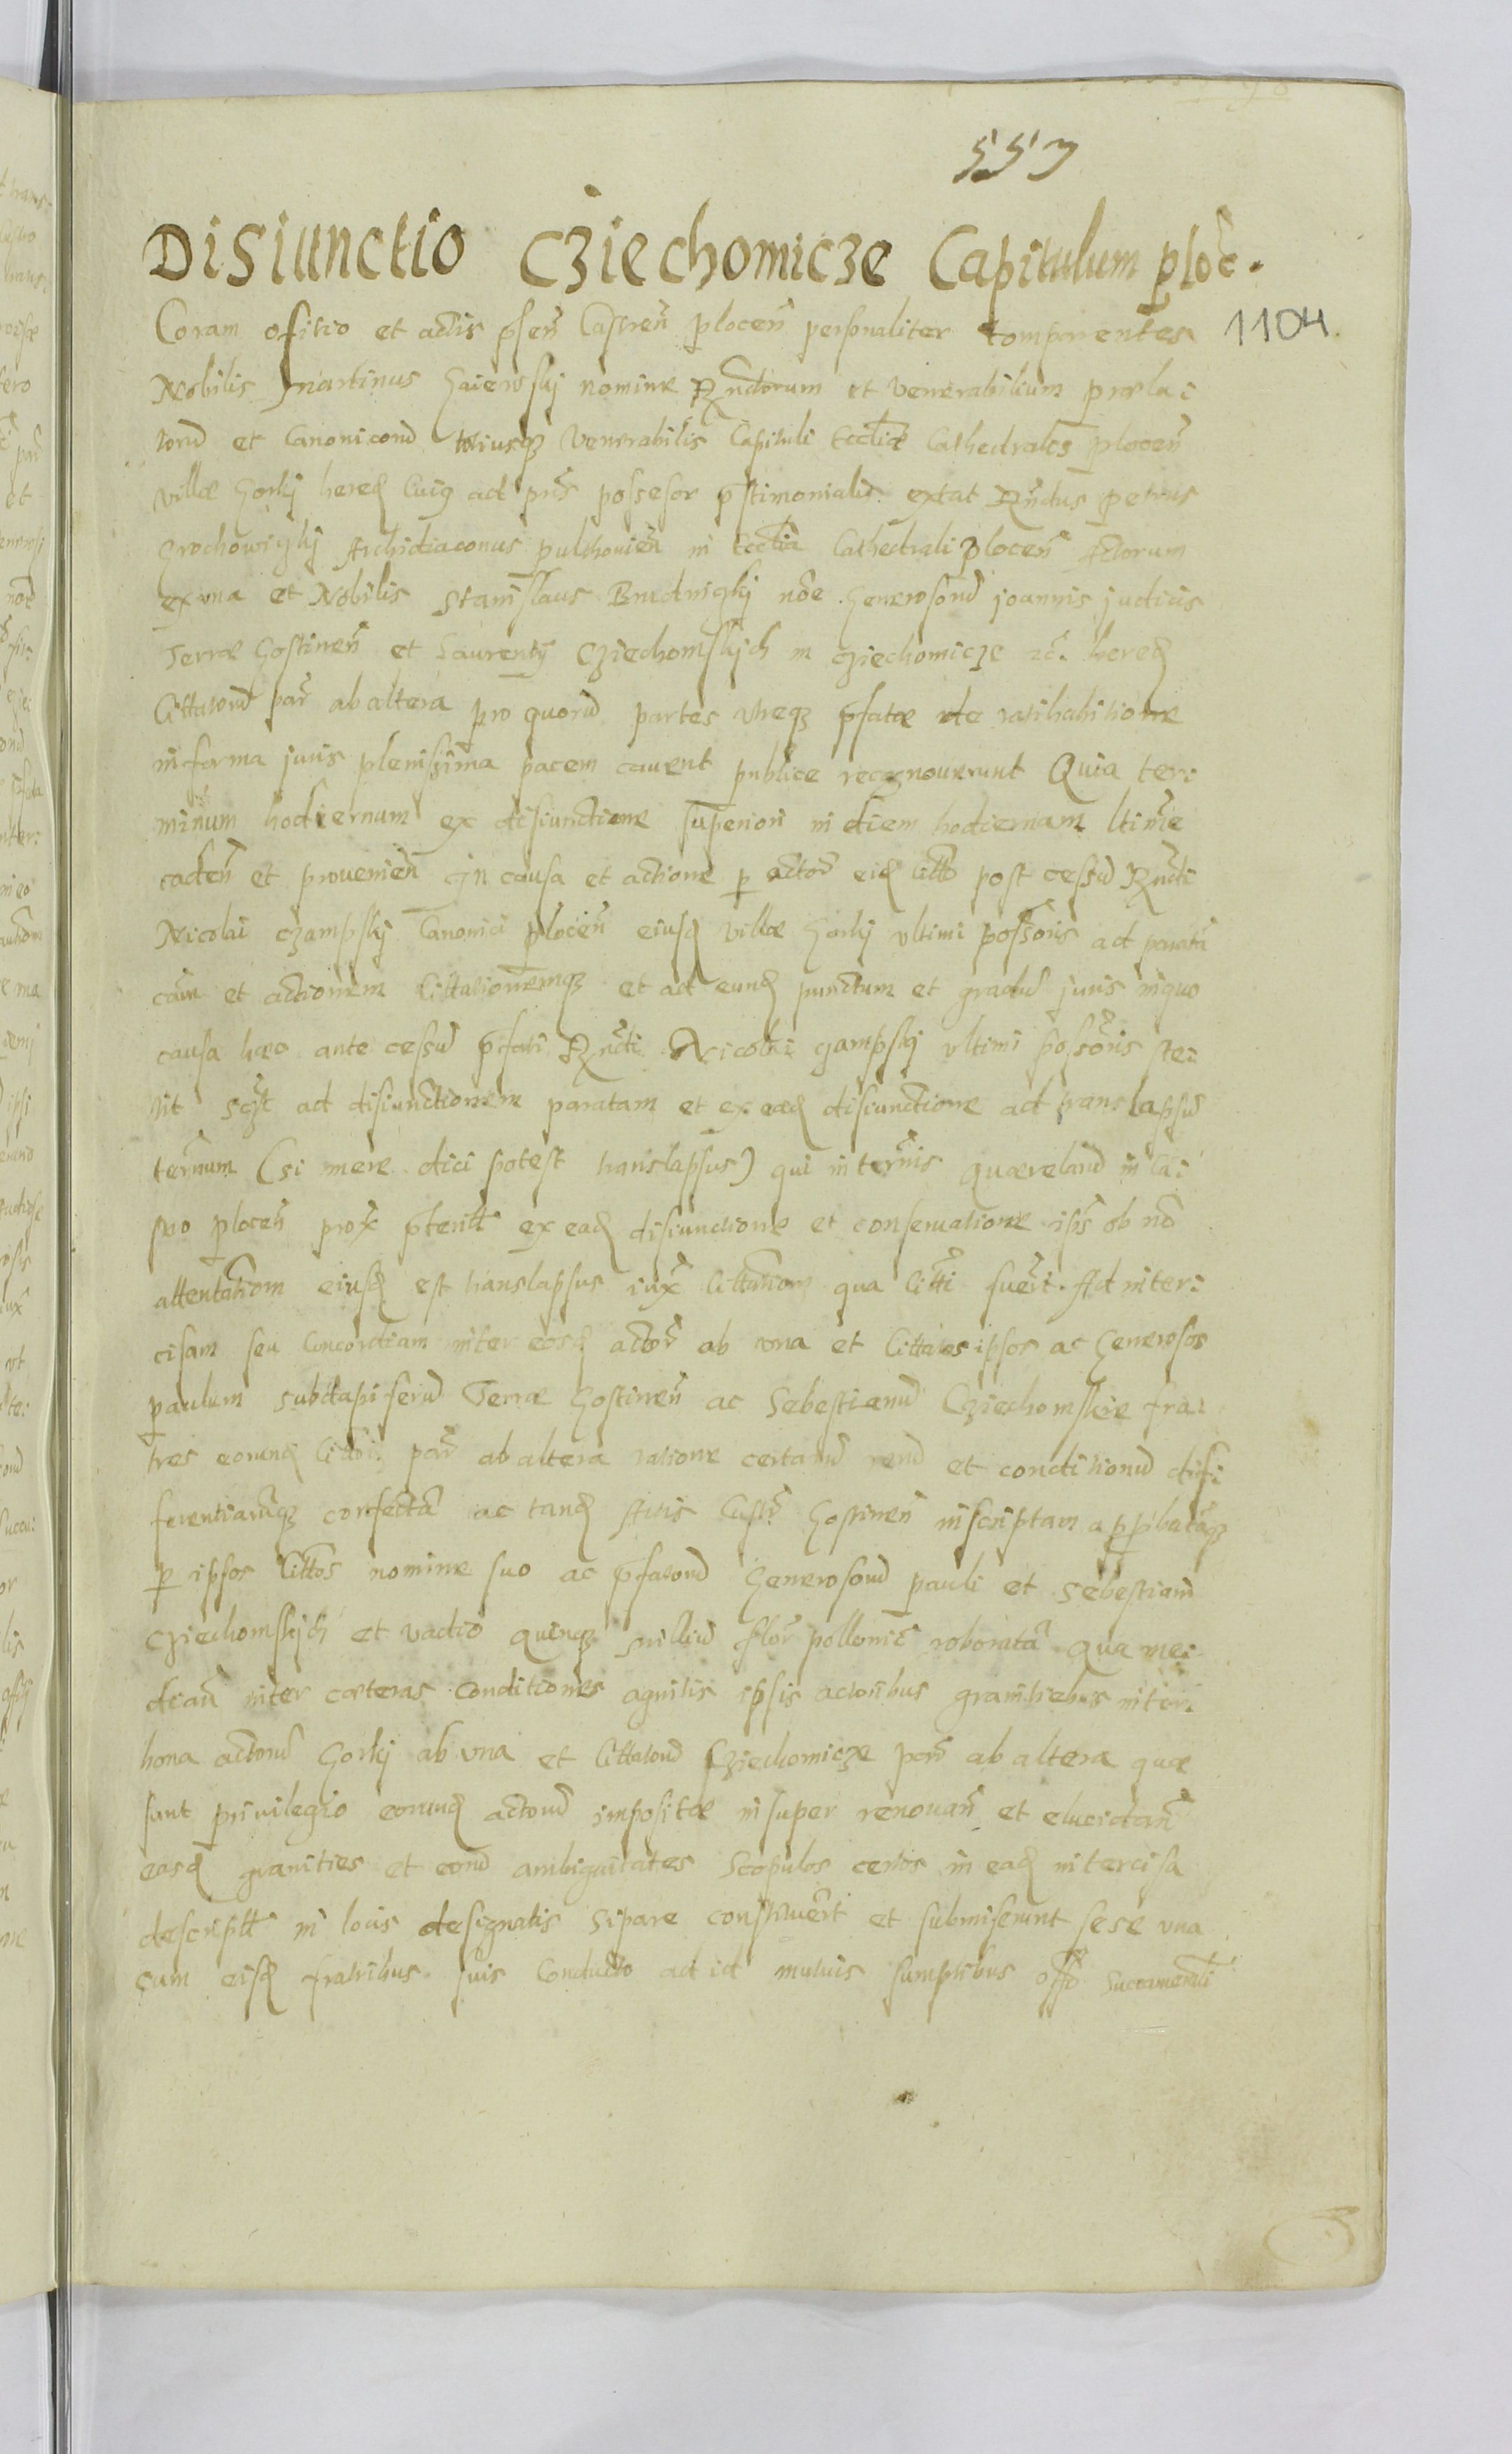 553
Disiunctio Cziechomicze Capitulum ploc̄.
1104.
Coram ofitio et actis p̄sen̄ Castren̄ plocen̄ personaliter comparentes
Nobilis Martinus Gaiewskj nomine Rn̄dorum et Venerabilium præla:
torū et Canonicorū totiusq₃ Venerabilis Capituli Eccliæ Cathedralis plocen̄
villæ Gorkj hered̄ Cuiq ad pn̄s possesor p̄stimonialis extat Rn̄dus petrus
Grochowiczkj Archidiaconus pulthouien̄ in Ecclia Cathedrali plocen̄ Actorum
ex vna et Nobilis Stanislaus Brudniczkj nōe Generosorū joannis judicis
Terræ Gostinen̄ et Laurentij Cziechomskich in Cziechomicze zc̄. hered̄
Cittatorū par̄ ab altera pro quorū partes vtreq₃ p̄fatæ de ratihabitione
in forma juris plenissima pacem cauent publice recognouerunt Quia ter:
minum hodiernum ex disiunctione superiori in diem hodiernam ltime
caden̄ et prouenien̄ in causa et actione p actor̄ eisd̄ Citto post cessū Rn̄di
Nicolai Czampskj Canonici plocen̄ eiusd̄ villæ Gorkj vltimi possoris ad paratā
cām et actionem Cittationemq₃ et ad eund̄ punctum et gradū juris in quo
causa hæc ante cessū p̄fati Rn̄di Nicolai Czampskj vltimi possoris ste:
tit scz̄t ad disiunctionem paratam et ex ead̄ disiunctione ad translapsū
ternum (si mere dici potest translapsus) qui in ternis quærelarū in Ca:
stro plocen̄ prox̄ p̄terit ex ead̄ disiunctione et conseruatione ips̄ ob nō
attentatiom eiusd̄ est translapsus iux̄ Cittatiom qua Citti fuer̄t. Ad inter:
cisam seu Concordiam inter eosd̄ actor̄ ab vna et Cittatos ipsos ac Generosos
paulum subdapiferū Terræ Gostinen̄ ac Sebestianū Cziechomskie fra:
tres eorund̄ Cittor: par̄ ab altera ratione certarū rerū et conditionū dif:
ferentiarūq₃ confectā ac tand̄ Actis Castr̄ Gostinen̄ inscriptam approbatāq₃
p ipsos Cittos nomine suo ac p̄fatorū Generosorū pauli et Sebestiani
Cziechomskich et vadio quinq₃ milliū flor̄ pollonic̄ roboratā qua me:
dian̄ inter cæteras Conditiones agnitis ipsis actoribus granitiebus inter:
bona actorū Gorkj ab vna et Cittatorū Cziechomicze par̄ ab altera quæ
sunt priuilegio eorund̄ actorū impositæ insuper renouan̄ et elucidan̄
easd̄ granities et eorū ambiguitates Scopulos certos in ead̄ intercisa
descript̄ in locis designatis sipare constituer̄t et submiserunt sese vna
cum eisd̄ fratribus suis Conducto ad id mutuis sumptibus offō Succamerali